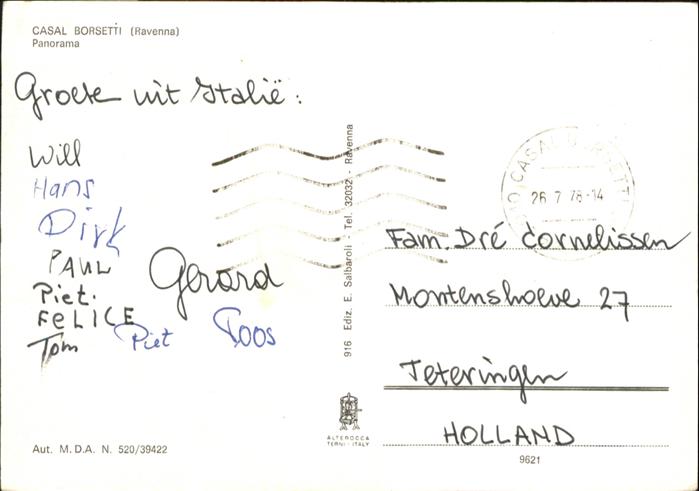 CASAL BORSETTI (Ravenna)
Panorama
Groete uit Italië:
Will
Hans
Dirk
PAUL
Gerard
Piet.
FELICE
Tom
Piet
Toos
916 Ediz. E. Salbaroli - Tel. 32032 - Ravenna
26 7 78-14
Fam. Dré Cornelissen
Montenshoeve 27
Teteringen
HOLLAND
ALTEROCCA
TERNI-ITALY
Aut. M.D.A. N. 520/39422
9621